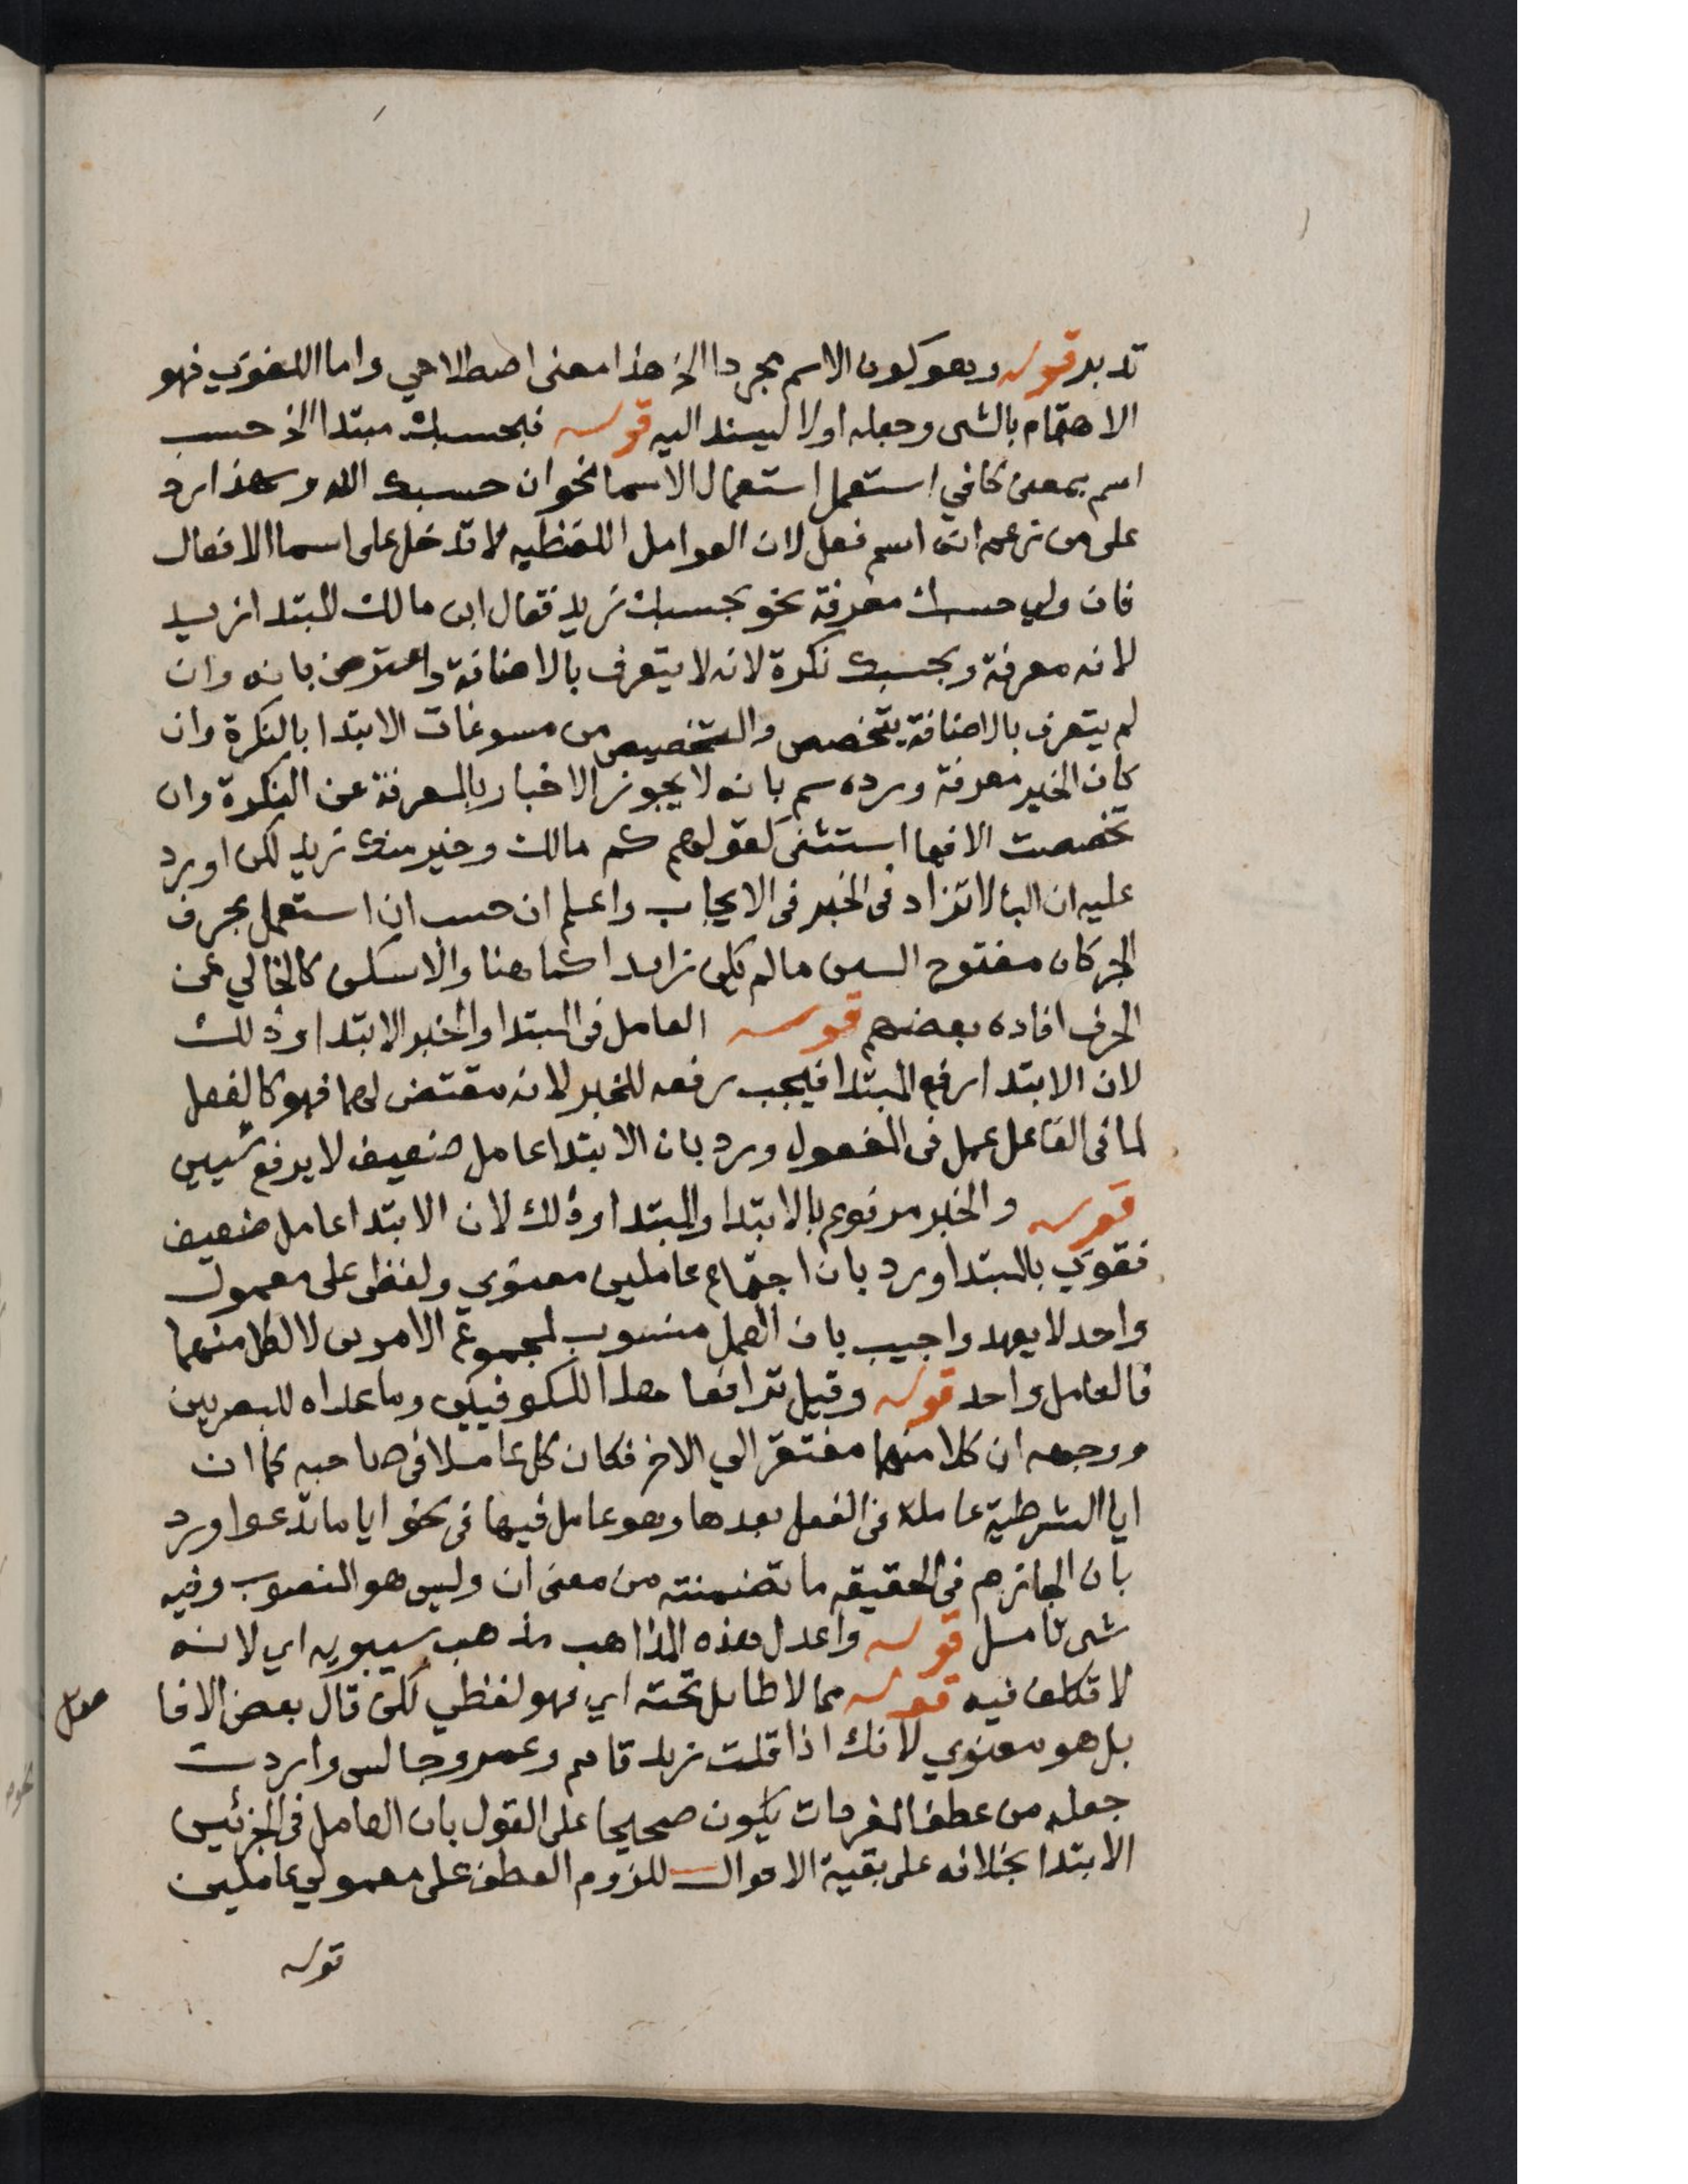 تدبر قوله وهو كون الاسم مجردا الخ هذا معنى اصطلاحي واما اللغوي فهو
الاهتمام بالشى وجعله اولا ليسند اليه قوله فبحسبك مبتدا الخ حسب
اسم بمعنى كافي استعمل استعمال الاسما نحو ان حسبك الله وهذا رد
على من زعم انه اسم فعل لان العوامل اللفظيه لا تدخل على اسما الافعال
فان ولي حسبك معرفة نحو بحسبك زيد فقال ابن مالك المبتدا زيد
لانه معرفة وبحسبك نكرة لانه لا يتعرف بالاضافة واعترض بانه وان
لم يتعرف بالاضافة يتخصص والتخصيص من مسوغات الابتدا بالنكرة وان
كان الخبر معرفة ورده سم بانه لا يجوز الاخبار بالمعرفة عن النكرة وان
تخصصت الا فيما استثنى كقولهم كم مالك وخير منك زيد لكن اورد
عليه ان البا لا تزاد فى الخبر فى الايجاب واعلم ان حسب ان استعمل بحرف
الجر كان مفتوح السين ما لم يكن زايدا كما هنا والا سكن كالخالي عن
الحرف افاده بعضهم قوله العامل فى المبتدا والخبر الابتدا وذلك
لان الابتدا رفع المبتدا فيجب رفعه للخبر لانه مقتض لهما فهو كالفعل
لما فى الفاعل عمل فى المفعول ورد بان الابتدا عامل ضعيف لا يرفع شيين
قوله والخبر مرفوع بالابتدا والمبتدا وذلك لان الابتدا عامل ضعيف
فقوي بالمبتدا ورد بان اجتماع عاملين معنوي ولفظى على معمول
واحد لا يعهد واجيب بان العمل منسوب لمجموع الامرين لا لكل منهما
فالعامل واحد قوله وقيل ترافعا هذا للكوفيين وما عداه للبصريين
ووجهه ان كلا منهما مفتقر الي الاخر فكان كل عاملا فى صاحبه كما ان
ايا الشرطية عاملة فى الفعل بعدها وهو عامل فيها فى نحو ايا ما تدعوا ورد
بان الجازم فى الحقيقه ما تضمنته من معنى ان وليس هو المنصوب وفيه
شى تامل قوله واعدل هذه المذاهب مذهب سيبويه اي لانه
لا تكلف فيه قوله مما لا طايل تحته اي فهو لفظي لكن قال بعض الافا
ضل
بل هو معنوي لانك اذا قلت زيد قايم وعمرو جالس واردت
جعله من عطف المفردات يكون صحيحا على القول بان العامل فى الجزئين
الابتدا بخلافه على بقية الاقوال للزوم العطف على معمولي عاملين
قوله